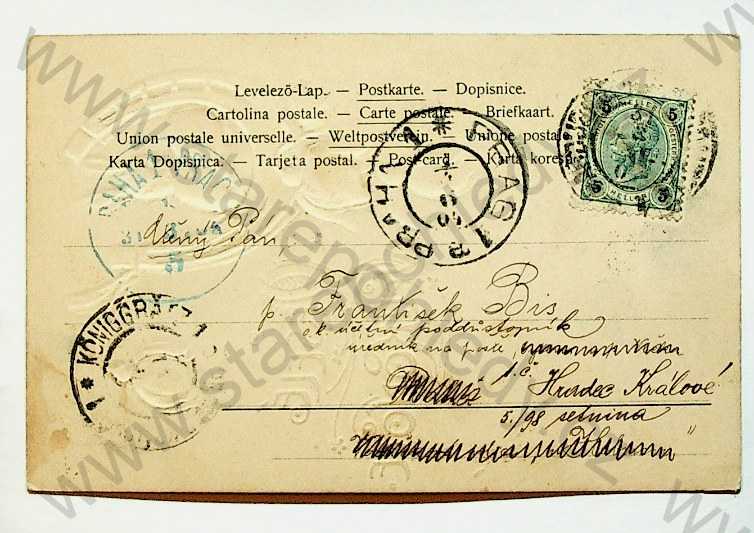 Levelezõ-Lap. — Postkarte. — Dopisnice.
Cartolina postale. — Carte postale. — Briefkaart.
Union postale universelle. — Weltpostverein. — Unione postale
Karta Dopisnica. — Tarjeta postal. — Post-card. — Karta korespo
PRAHA 1 PRAG 1
PRAHA 1 * PRAG 1
5 5
5 5
HELLER
Pán
p. František Bis
c. k. účetní poddůstojník
úředník na poště
t. č. Hradec Králové
5./98 setnina
* KÖNIGGRÄTZ 1
www.starepohledy.cz